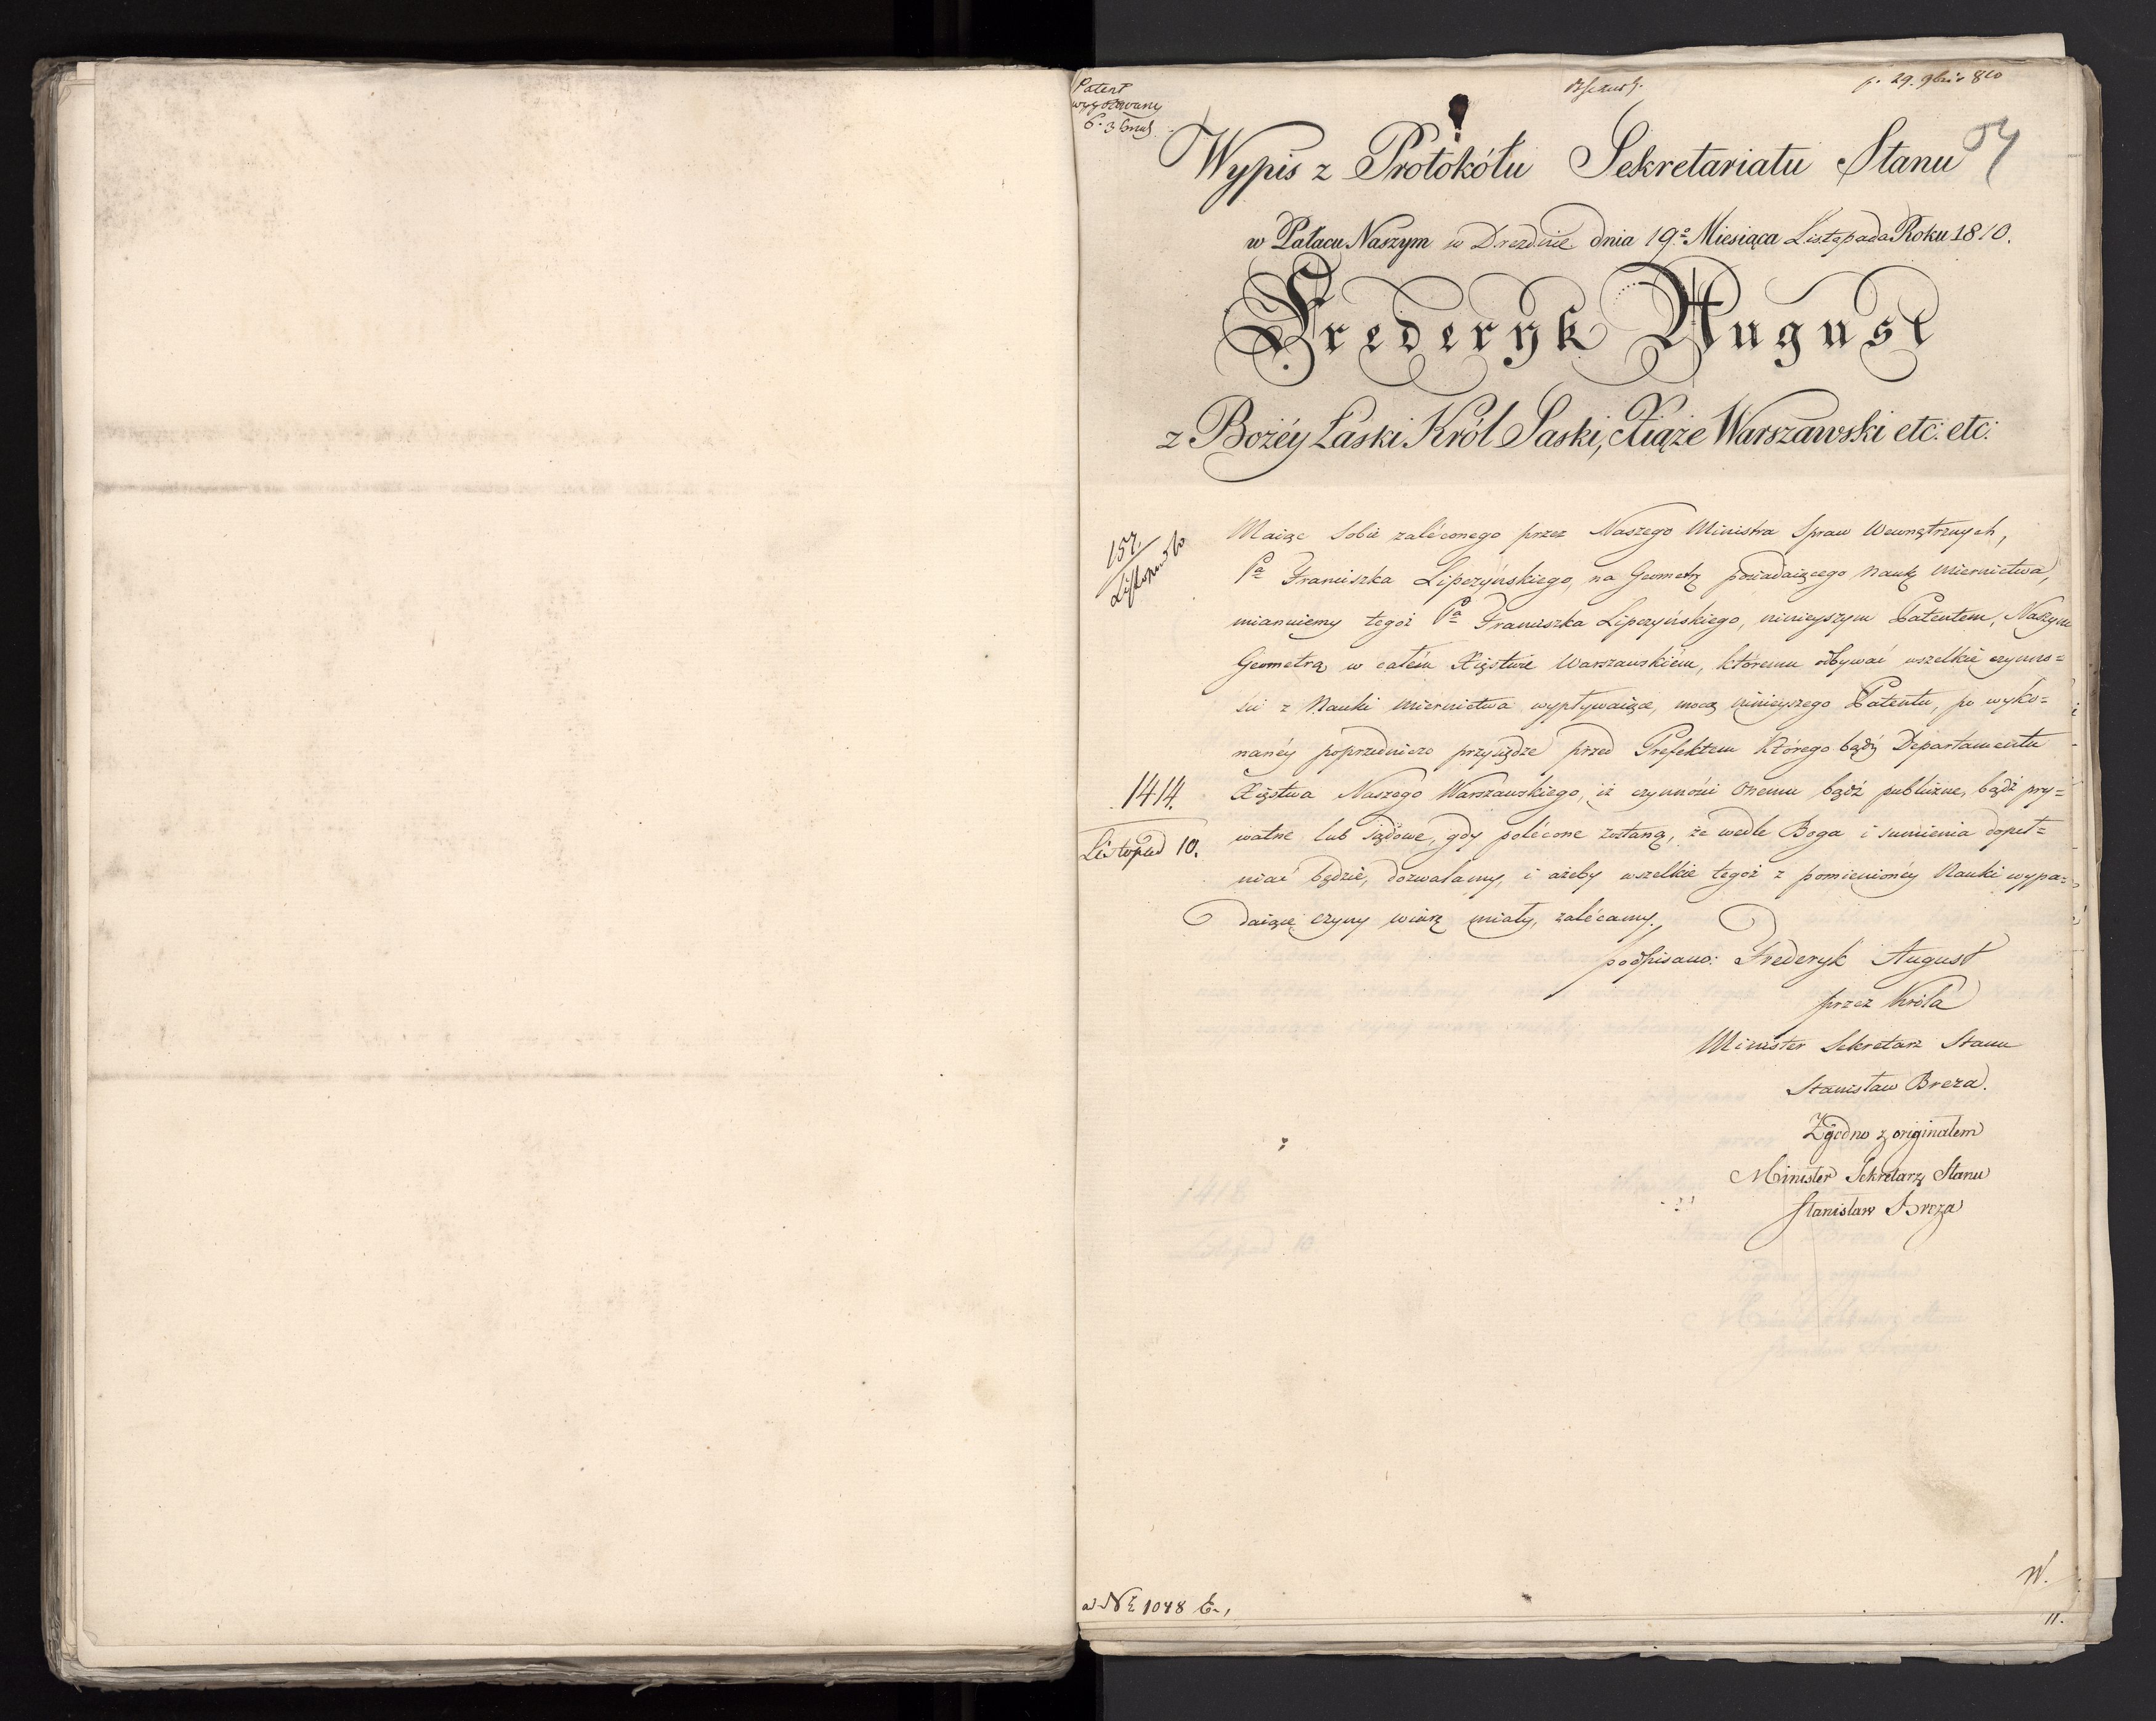 Patent
wygotowany
p. 29. 9bris 810
54
Wypis z Protokółu Sekretariatu Stanu
w Pałacu Naszym w Dreznie dnia 19º Miesiąca Listopada Roku 1810.
Frederyk August
z Bożéy Łaski Król Saski, Xiąże Warszawski etc: etc:
157.
Listopad 10
Maiąc sobie zaléconego przez Naszego Ministra Spraw Wewnętrznych,
Pª Franciszka Lipczyńskiego, na Geometrę posiadaiącego naukę miernictwa,
mianuiemy tegoż Pª Franciszka Lipczyńskiego, ninieyszym Patentem, Naszym
Geometrą w całém Xięstwie Warszawskiém, któremu odbywać wszelkie czynno=
ści z Nauki miernictwa wypływaiące, mocą ninieyszego Patentu, po wyko=
nanéy poprzedniczo przysiędze przed Prefektem którego bądź Departamentu
Xięstwa Naszego Warszawskiego, iż czynności onemu bądź publiczne, bądź pry=
watne lub sądowe, gdy polécone zostaną, że wedle Boga i sumienia dopeł=
niać będzie, dozwalamy, i ażeby wszelkie tegoż z pomienionéy Nauki wypa=
daiące czyny wiarę miały, zalécamy.
1414.
Listopad 10.
podpisano: Frederyk August
przez Króla
Minister Sekretarz Stanu
Stanisław Breza.
Zgodno z originałem
Minister Sekretarz Stanu
Stanisław Breza
W.
ad Nº 1048
11.